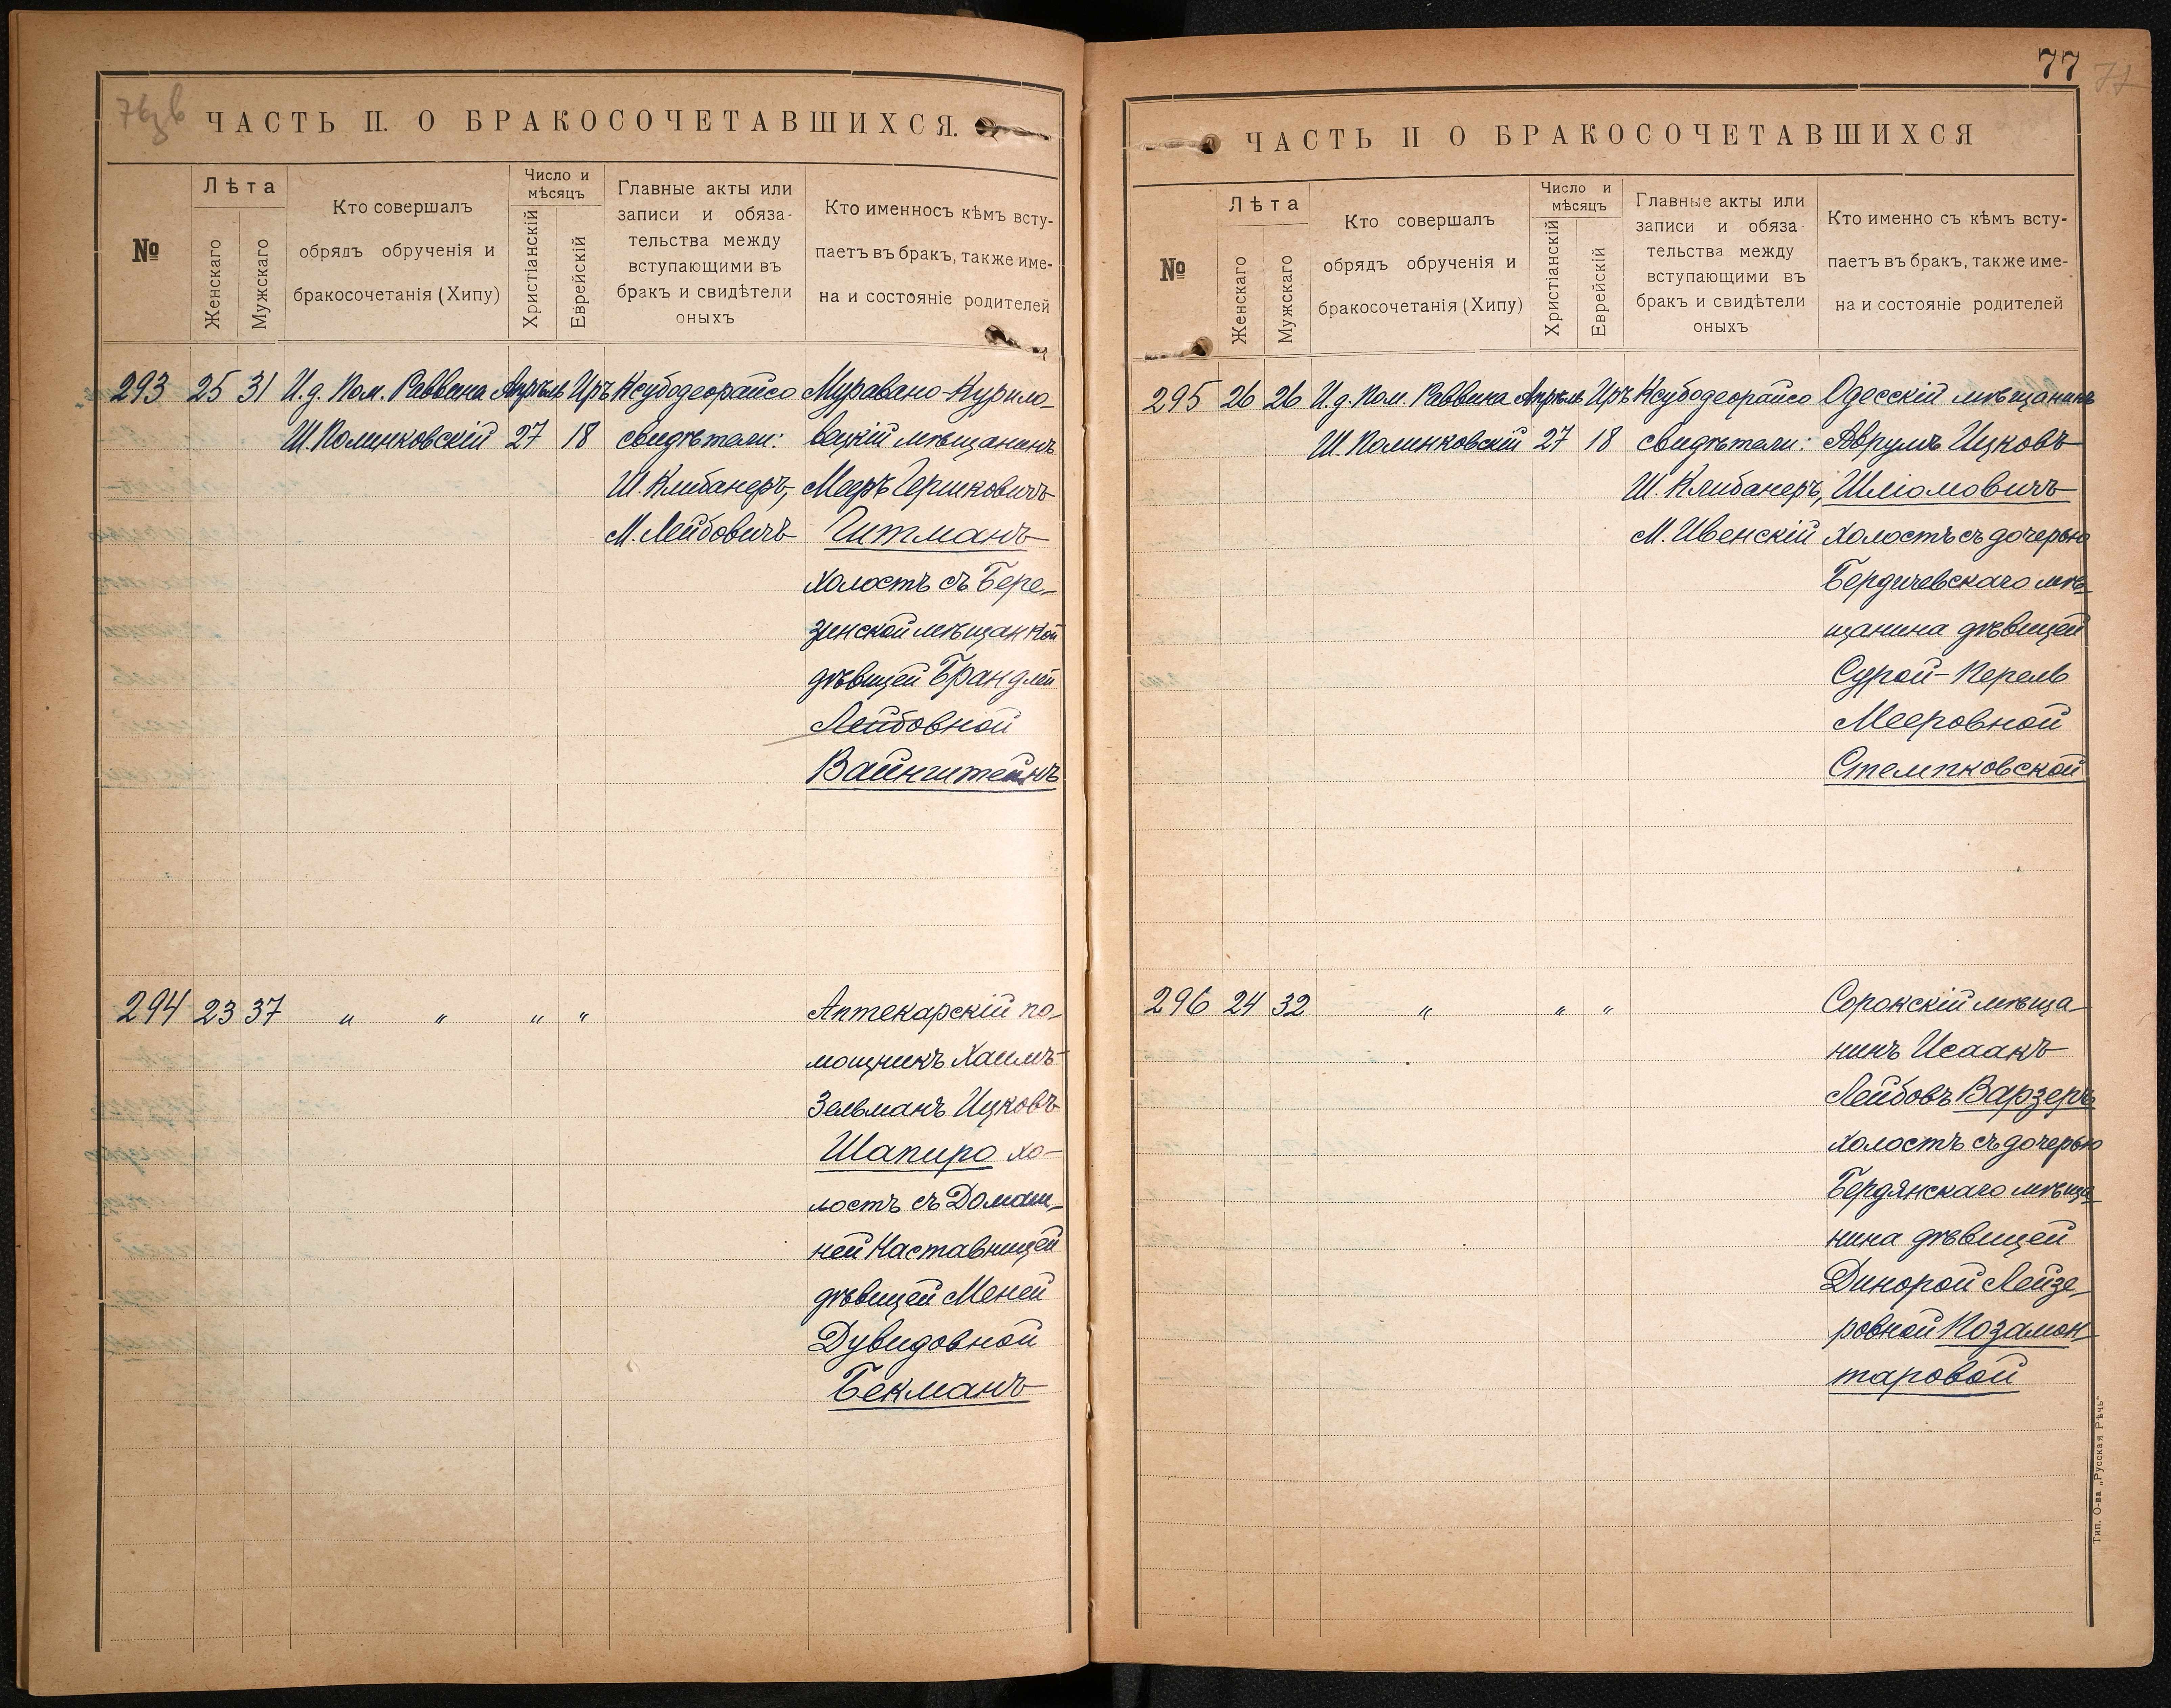 76 зв
ЧАСТЬ II. О БРАКОСОЧЕТАВШИХСЯ.
№
Лѣта
Женскаго
Мужскаго
Кто совершалъ
обрядъ обрученія и
бракосочетанія (Хипу)
Число и
мѣсяцъ
Христіанскій
Еврейскій
Главные акты или
записи и обяза-
тельства между
вступающими въ
бракъ и свидѣтели
оныхъ
Кто именносъ кѣмъ всту-
паетъ въ бракъ, также име-
на и состояніе родителей
293 25 31 И.д. Пом. Раввина Апрѣль Иръ Ксубодеорайсо Муравано-Курило-
Ш. Полинковскій 27 18 свидѣтели: вецкій мѣщанинъ
Ш. Клибанеръ, Мееръ Гершковичъ
М. Лейбовичъ Гитманъ
холостъ съ Бере-
зинской мѣщанкой
дѣвицей Брандлей
Лейбовной
Вайнштейнъ
294 23 37 " " " " Аптекарскій по-
мощникъ Хаимъ-
Зельманъ Ицковъ
Шапиро хо-
лостъ съ Домаш-
ней Наставницей
дѣвицей Меней
Дувидовной
Бекманъ
77
77
ЧАСТЬ II О БРАКОСОЧЕТАВШИХСЯ
№
Лѣта
Женскаго
Мужскаго
Кто совершалъ
обрядъ обрученія и
бракосочетанія (Хипу)
Число и
мѣсяцъ
Христіанскій
Еврейскій
Главные акты или
записи и обяза
тельства между
вступающими въ
бракъ и свидѣтели
оныхъ
Кто именно съ кѣмъ всту-
паетъ въ бракъ, также име-
на и состояніе родителей
295 26 26 И.д. Пом. Раввина Апрѣль Иръ Ксубодеорайсо Одесскій мѣщанинъ
Ш. Полинковскій 27 18 свидѣтели: Аврумъ Ицковъ
Ш. Клибанеръ, Шліомовичъ
М. Ивенскій холостъ съ дочерью
Бердичевскаго мѣ-
щанина дѣвицей
Сурой-Перель
Мееровной
Стемпковской
296 24 32 " " " Сорокскій мѣща-
нинъ Исаакъ
Лейбовъ Варзеръ
холостъ съ дочерью
Бердянскаго мѣща-
нина дѣвицей
Динорой Лейзе-
ровной Позамон-
таровой
Тип. О-ва „Русская Рѣчь"